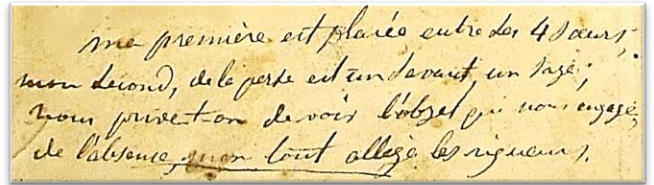 ma première est placée entre les 4 sœurs;
mon second, de la perse est un savant, un sage;
nous privent-on de voir l'objet qui nous engage,
de l'absence, mon tout allège les rigueurs.